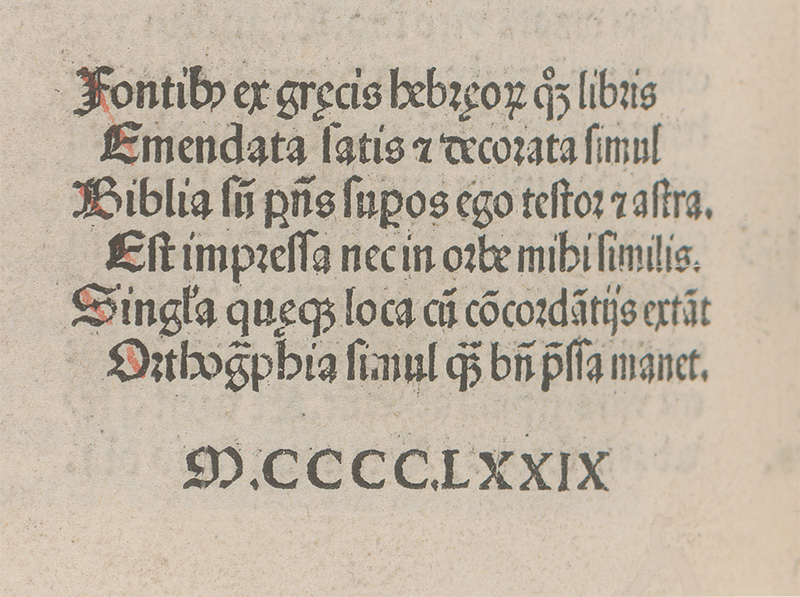 Fontibꝰ ex gręcis hebręoꝝ qͦꝫ libris
Emendata satis ⁊ decorata simul
Biblia sū p̄ n̄s suꝑos ego testor ⁊ astra.
Est impressa nec in orbe mihi similis.
Singl̓a quęqꝫ loca cū cōcordātijs extāt
Orthog̃phia simul q̃ꝫ bn̄ p̄ssa manet.
M.CCCC.LXXIX